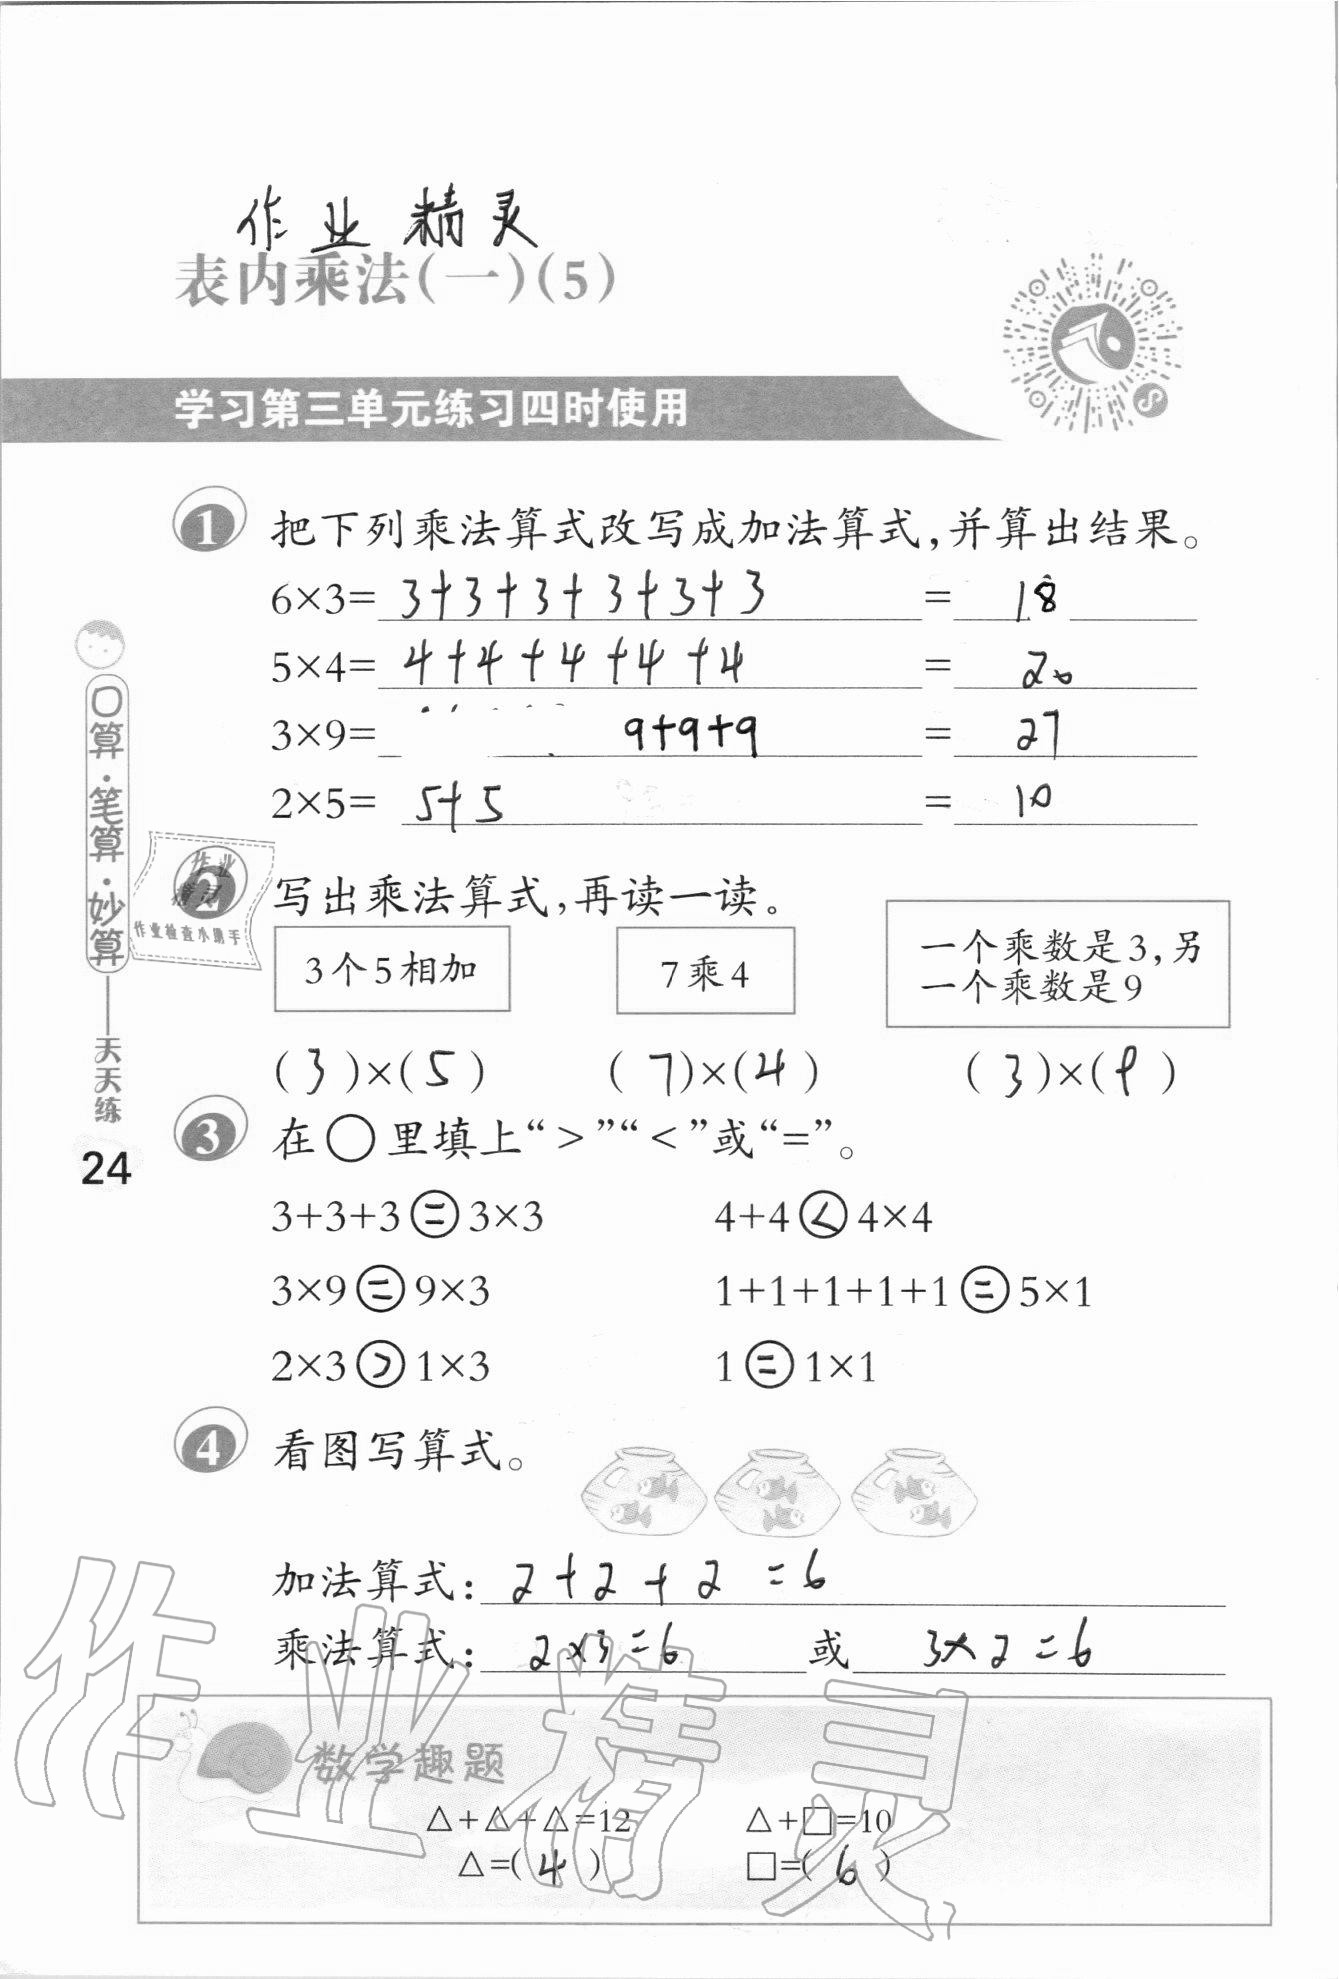 作业精灵
表内乘法(一)(5)
学习第三单元练习四时使用
1 把下列乘法算式改写成加法算式,并算出结果。
6×3= 3+3+3+3+3+3 = 18
5×4= 4+4+4+4+4 = 20
3×9= 9+9+9 = 27
2×5= 5+5 = 10
2 写出乘法算式,再读一读。
3个5相加
7乘4
一个乘数是3,另
一个乘数是9
(3)×(5) (7)×(4) (3)×(9)
3 在○里填上“>”“<”或“=”。
3+3+3 = 3×3 4+4 < 4×4
3×9 = 9×3 1+1+1+1+1 = 5×1
2×3 > 1×3 1 = 1×1
4 看图写算式。
加法算式: 2+2+2=6
乘法算式: 2×3=6 或 3×2=6
数学趣题
△+△+△=12 △+□=10
△=(4) □=(6)
口算·笔算·妙算
天天练
24
作业
精灵
作业检查小助手
作业精灵